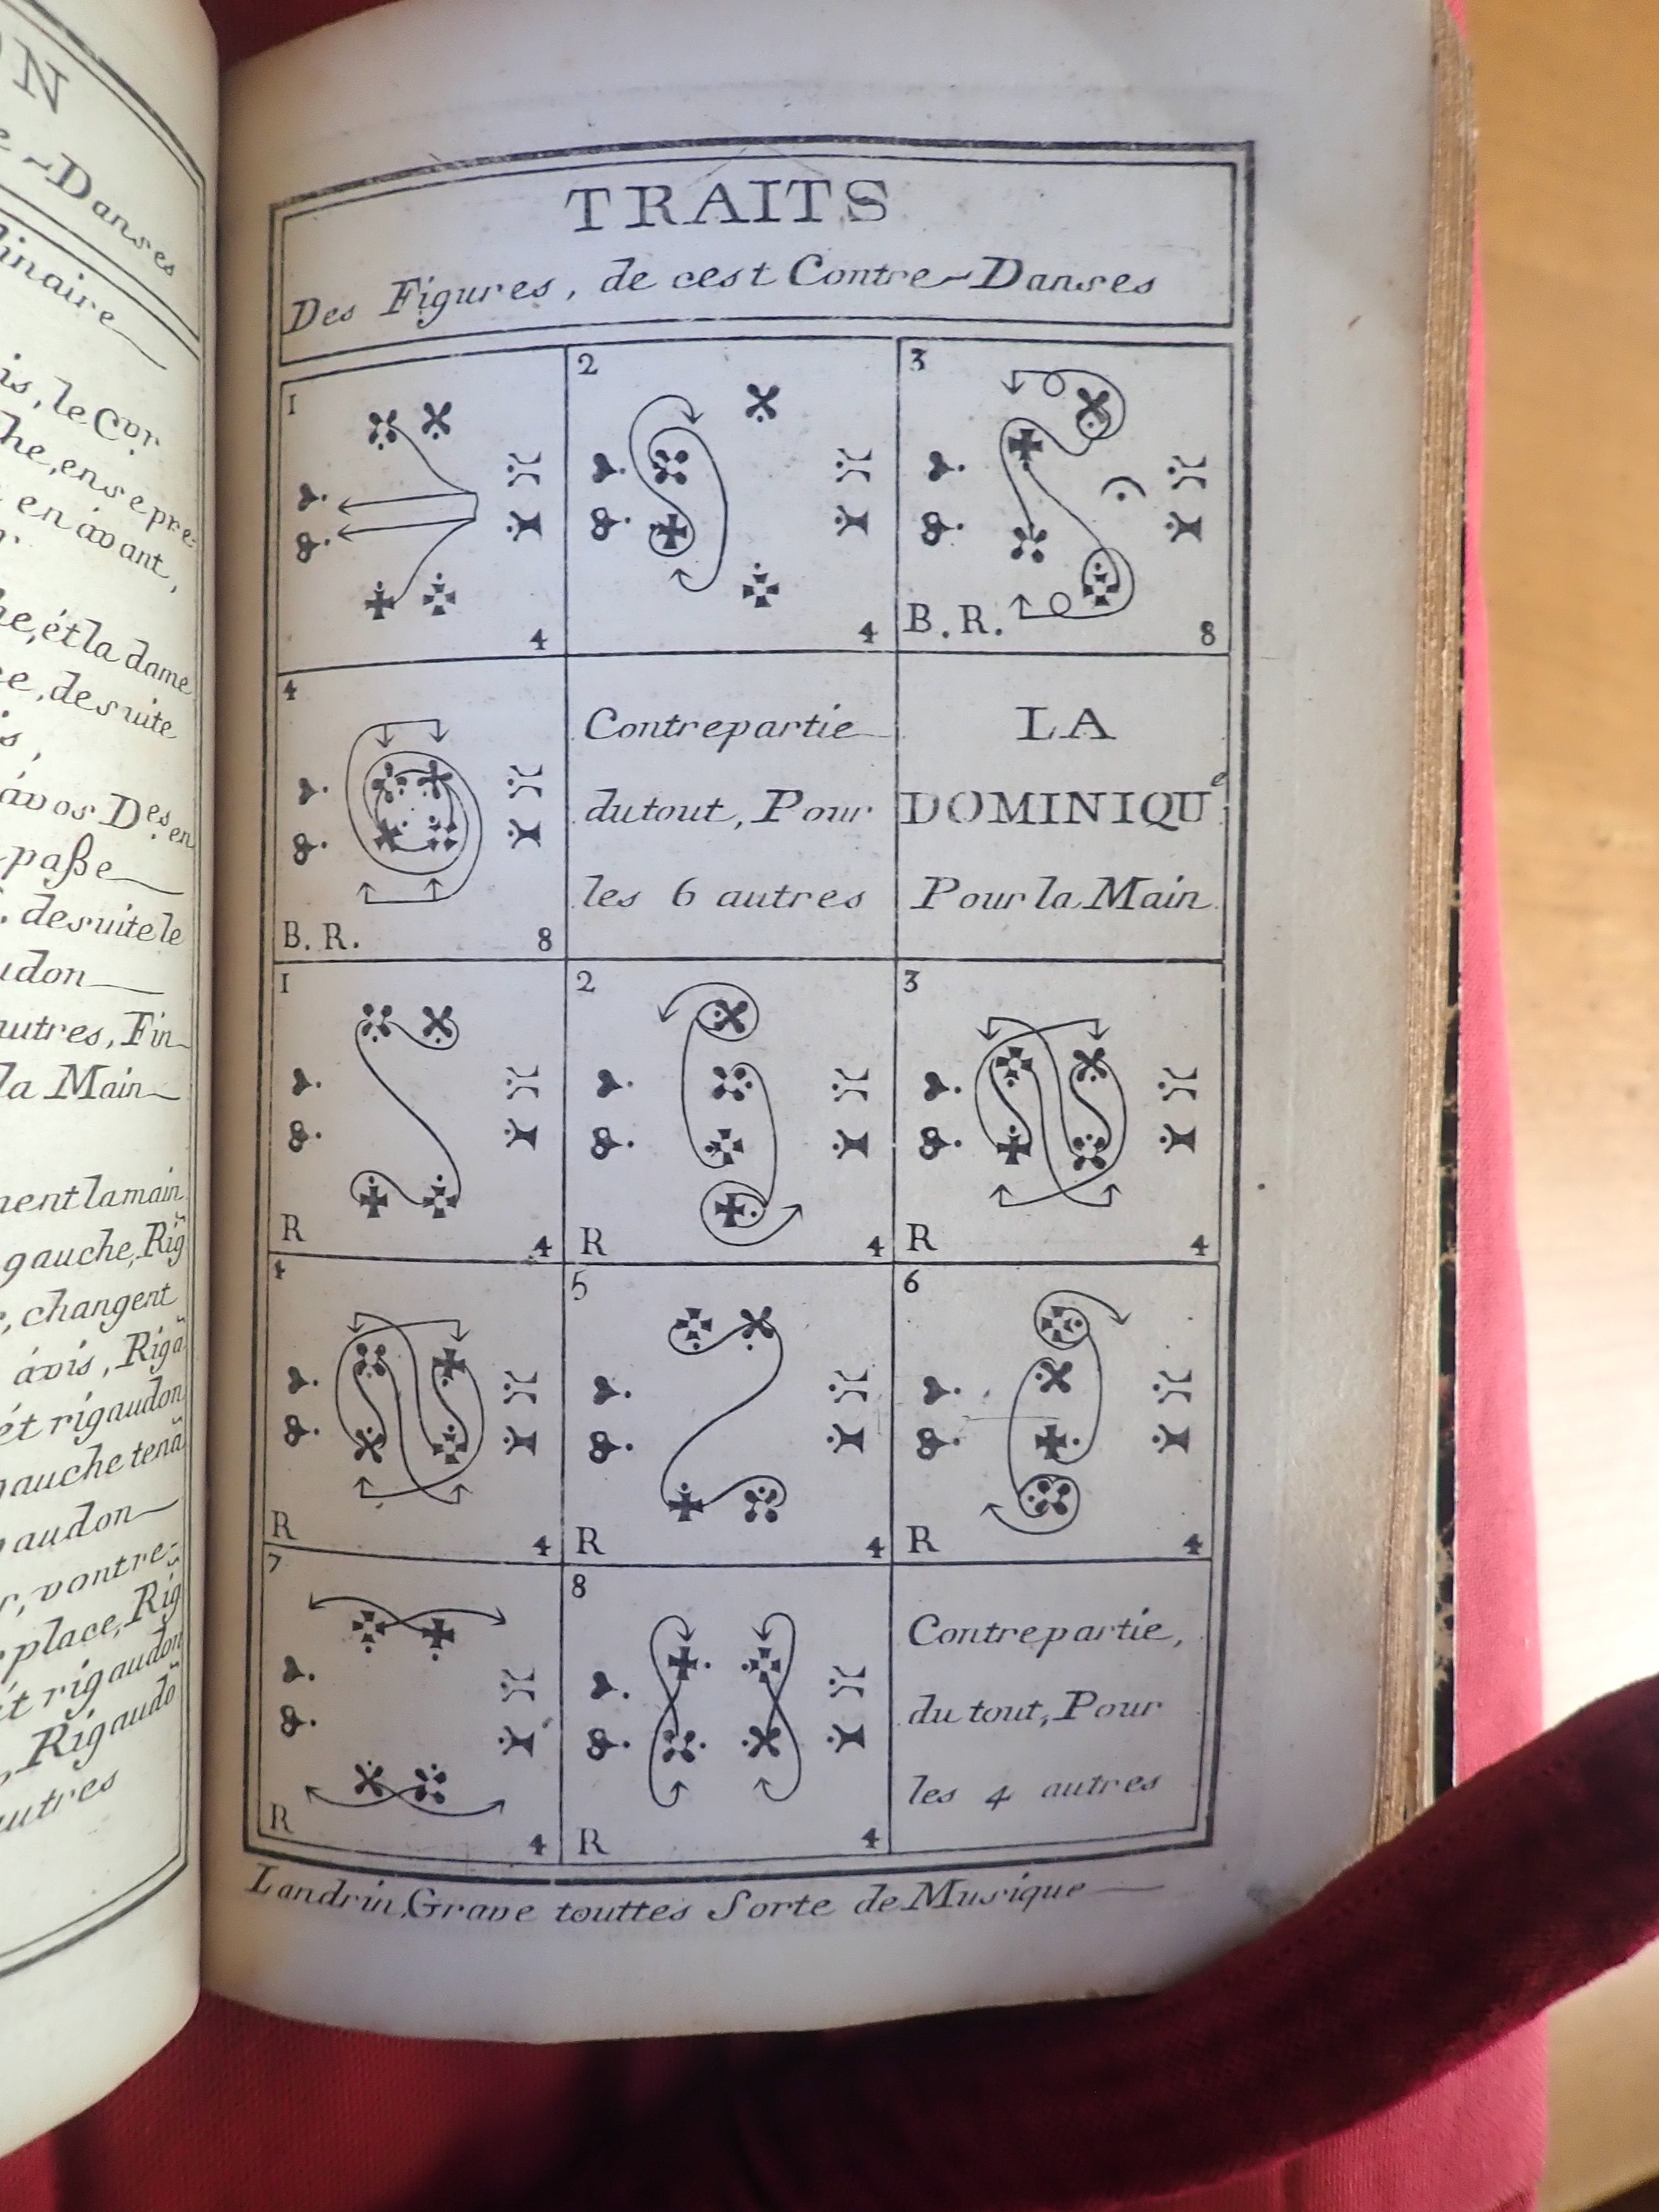 ON
Danses
linaire
is, le Cor
he, ense pre-
en avant,
he, ét la dame
ce, desuite
s,
ávos D^es. en
paße
. desuite le
udon
utres, Fin
la Main
nent la main
gauche, Rig
, changent
ávis, Rigã
ét rigaudon
gauche tenã
audon
r, vontre-
place, Rig
t rigaudon
, Rigaudõ
autres
TRAITS
Des Figures, de cest Contre-Danses
1
4
2
4
3
B. R.
8
4
B. R.
8
Contrepartie
du tout, Pour
les 6 autres
LA
DOMINIQUe
Pour la Main
1
R
4
2
R
4
3
R
4
4
R
4
5
R
4
6
R
4
7
R
4
8
R
4
Contrepartie,
du tout, Pour
les 4 autres
Landrin, Grave touttes Sorte de Musique